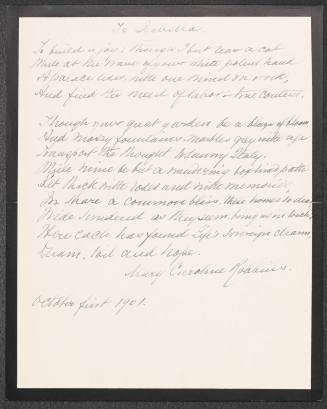 To Isabella
To build a joy; though I but rear a cot
While at the wave of your white, potent hand
A palace rises, with one mind we work,
And find the meed of labor - true content.
Though your quaint gardens be a blaze of bloom
And mossy fountains, marbles grey with age
Transport the thought to sunny Italy,
While mine be but a wandering, box-lined path
Set thick with roses and with memories,
We share a common bliss, these homes so dear
Wide sundered as they seem bring us in touch,
Where each has found Life's sovereign charm,
Dream, toil and hope.
Mary Caroline Robbins.
October first 1901.